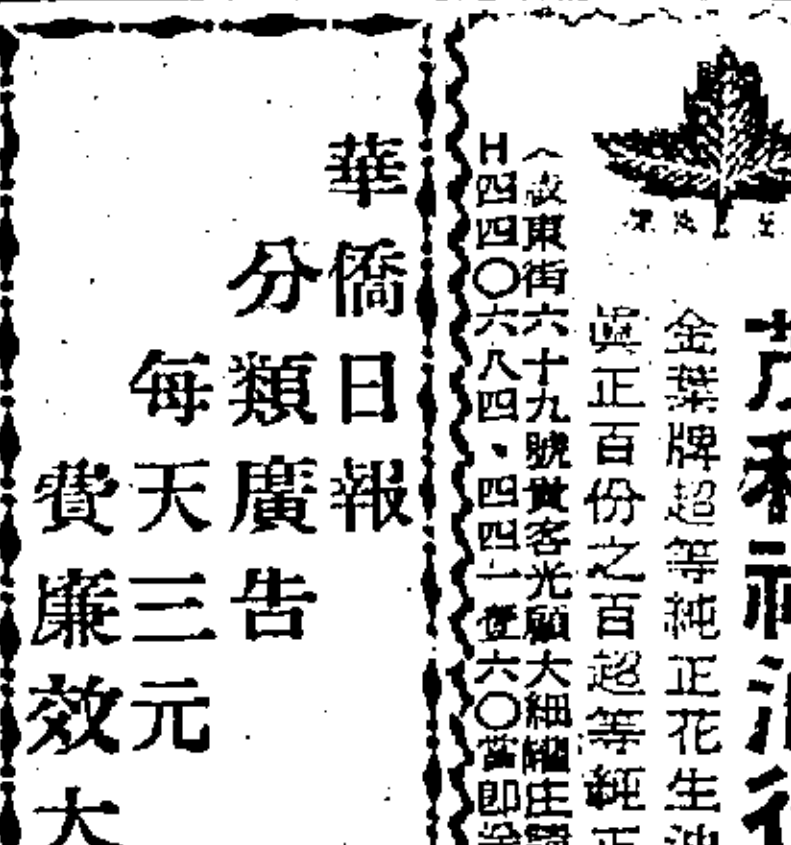 茂利
金葉牌超等純正花生油
眞正百份之百超等純正
東街六十九號貴客光顧大細罐庄
H四四〇六八四、四四一壹六〇當即
華僑日報
分類廣告
每天三元
費廉效大